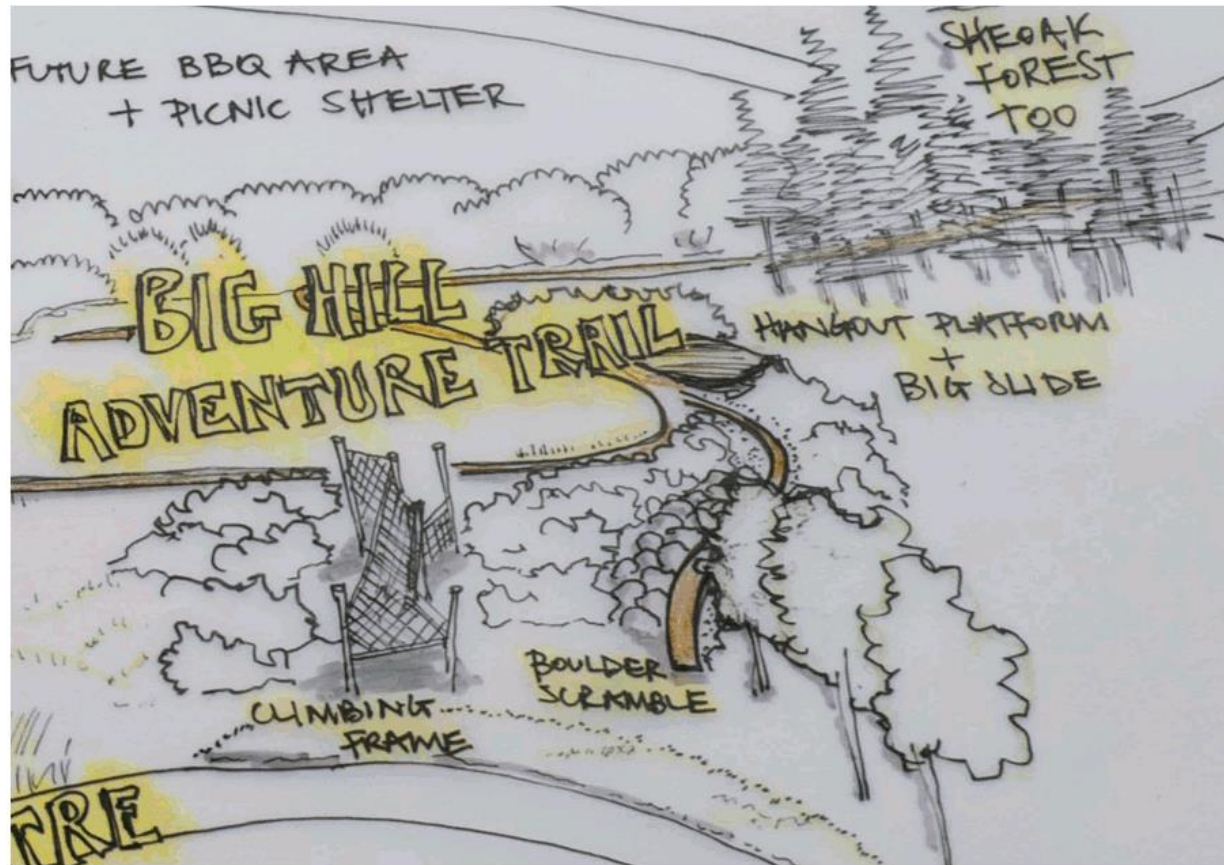 FUTURE BBQ AREA
+ PICNIC SHELTER
SHEOAK
FOREST
TOO
BIG HILL
ADVENTURE TRAIL
HANGOUT PLATFORM
+
BIG SLIDE
BOULDER
SCRAMBLE
CLIMBING
FRAME
TRE